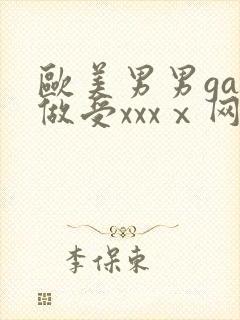 歐美男男ga
做受xxxⅹ网
李保东